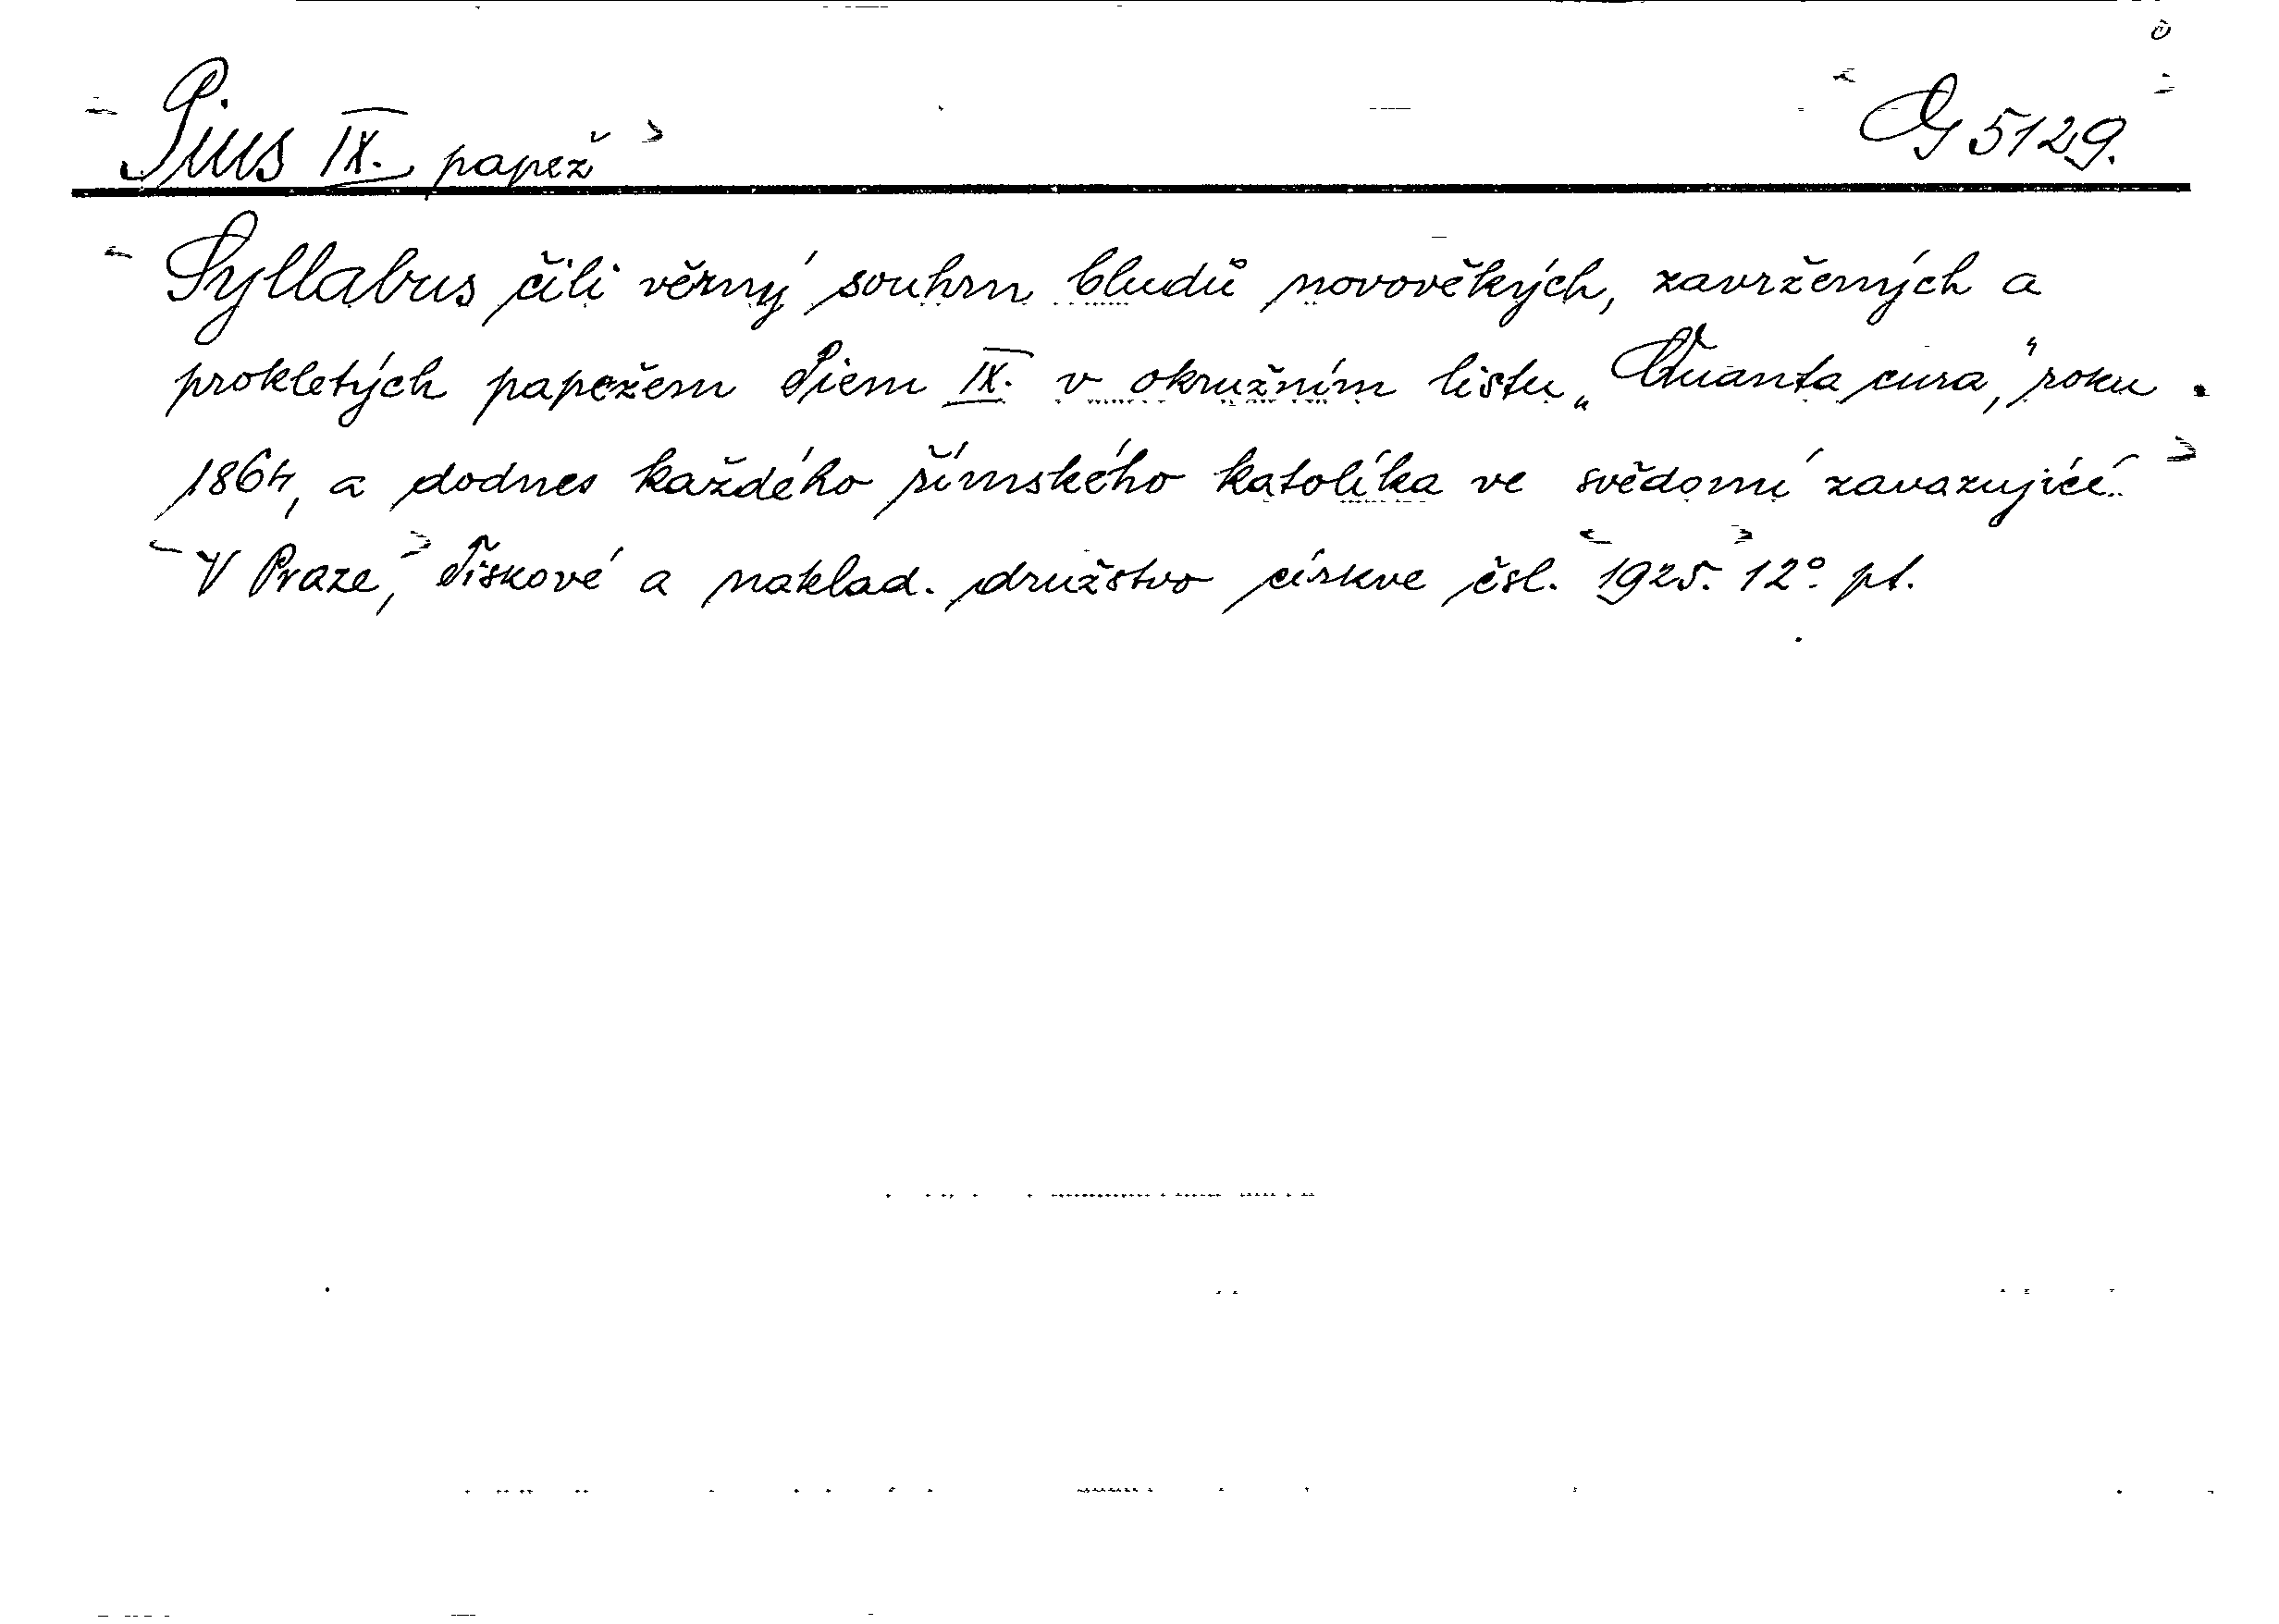 Pius IX. papež
G 5129.
Syllabus čili věrný souhrn bludů novověkých, zavržených a
prokletých papežem Piem IX. v okružním listu „Quanta cura," roku
1864, a dodnes každého římského katolíka ve svědomí zavazující.
V Praze, Tiskové a naklad. družstvo církve čsl. 1925. 12° pt.